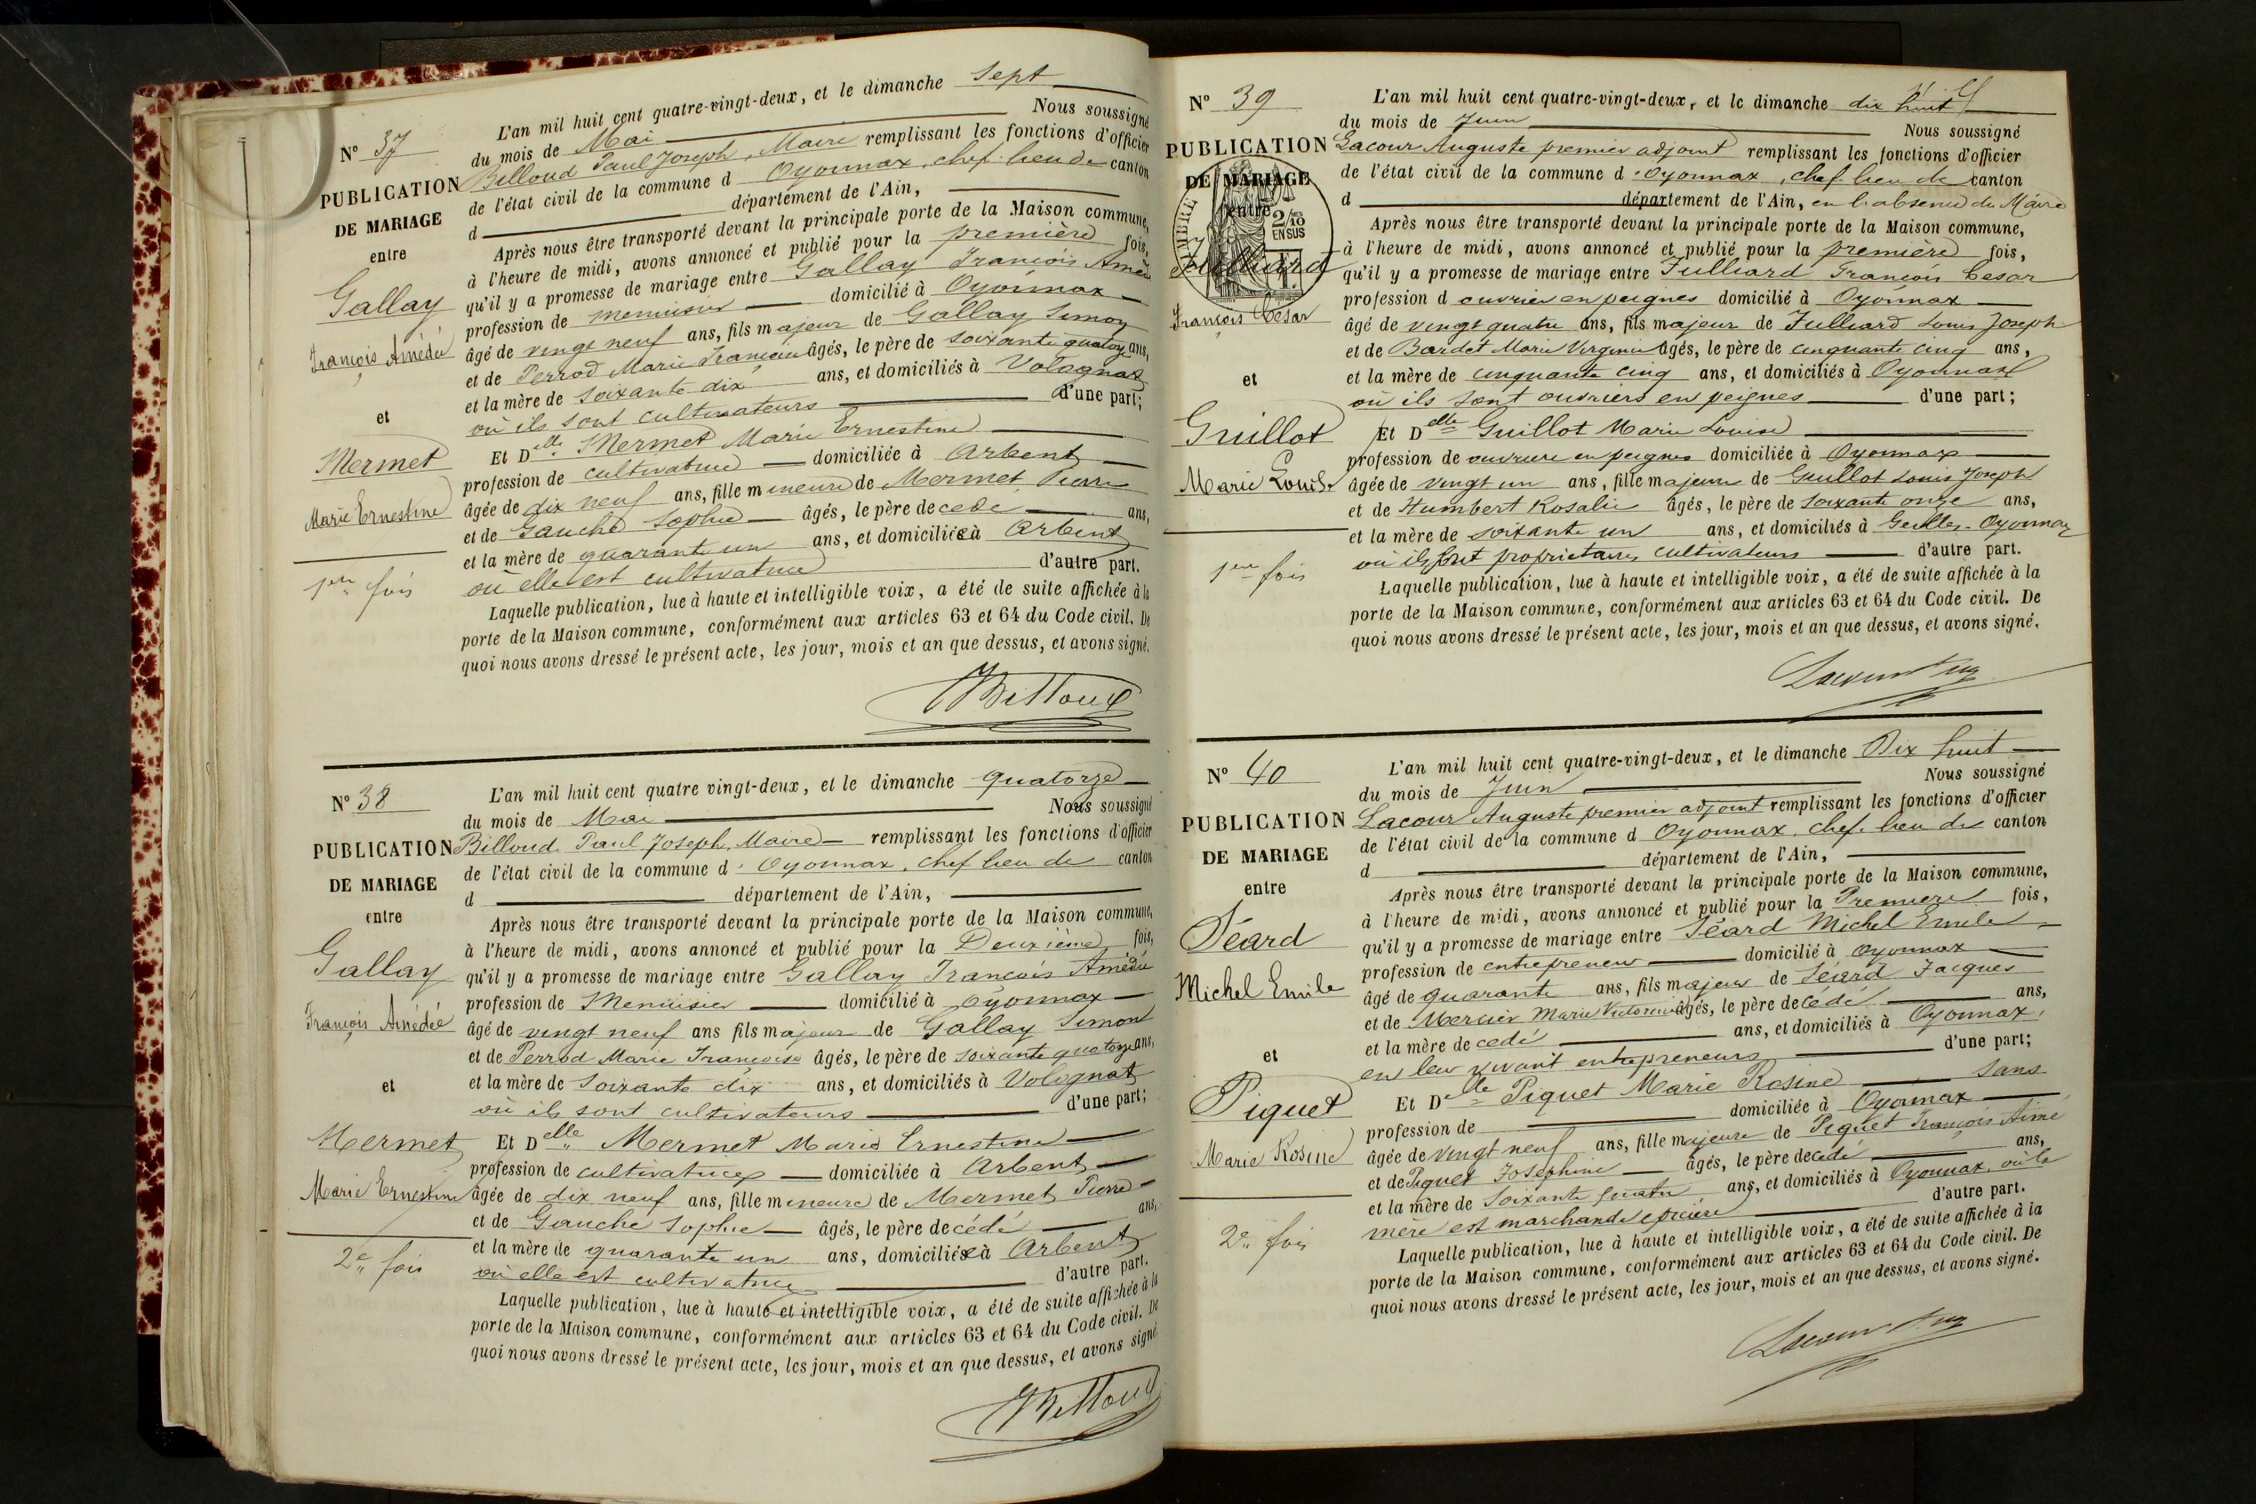 N° 37
PUBLICATION
DE MARIAGE
entre
Gallay
François Amédée
et
Mermet
Marie Ernestine
1ère fois
L'an mil huit cent quatre-vingt-deux, et le dimanche sept
du mois de Mai Nous soussigné
Billoud Paul Joseph, Maire remplissant les fonctions d'officier
de l'état civil de la commune d Oyonnax, chef-lieu de canton
d département de l'Ain,
Après nous être transporté devant la principale porte de la Maison commune,
à l'heure de midi, avons annoncé et publié pour la première fois,
qu'il y a promesse de mariage entre Gallay François Amédée
profession de menuisier domicilié à Oyonnax
âgé de vingt neuf ans, fils majeur de Gallay Simon
et de Perrod Marie Françoise âgés, le père de soixante quatorze ans,
et la mère de soixante dix ans, et domiciliés à Volognat
où ils sont cultivateurs d'une part;
Et Delle Mermet Marie Ernestine
profession de cultivatrice domiciliée à Arbent
âgée de dix neuf ans, fille mineure de Mermet Pierre
et de Gauche Sophie âgés, le père décédé ans,
et la mère de quarante un ans, et domiciliée à Arbent
où elle est cultivatrice d'autre part.
Laquelle publication, lue à haute et intelligible voix, a été de suite affichée à la
porte de la Maison commune, conformément aux articles 63 et 64 du Code civil. De
quoi nous avons dressé le présent acte, les jour, mois et an que dessus, et avons signé.
Billoud
N° 38
PUBLICATION
DE MARIAGE
entre
Gallay
François Amédée
et
Mermet
Marie Ernestine
2e fois
L'an mil huit cent quatre vingt-deux, et le dimanche quatorze
du mois de Mai Nous soussigné
Billoud Paul Joseph, Maire remplissant les fonctions d'officier
de l'état civil de la commune d'Oyonnax, chef lieu de canton
d département de l'Ain,
Après nous être transporté devant la principale porte de la Maison commune,
à l'heure de midi, avons annoncé et publié pour la Deuxième fois,
qu'il y a promesse de mariage entre Gallay François Amédée
profession de Menuisier domicilié à Oyonnax
âgé de vingt neuf ans fils majeur de Gallay Simon
et de Perrod Marie Françoise âgés, le père de soixante quatorze ans,
et la mère de soixante dix ans, et domiciliés à Volognat
où ils sont cultivateurs d'une part;
Et Delle Mermet Marie Ernestine
profession de cultivatrice domiciliée à Arbent
âgée de dix neuf ans, fille mineure de Mermet Pierre
et de Gauche Sophie âgés, le père décédé ans,
et la mère de quarante un ans, domiciliée à Arbent
où elle est cultivatrice d'autre part.
Laquelle publication, lue à haute et intelligible voix, a été de suite affichée à la
porte de la Maison commune, conformément aux articles 63 et 64 du Code civil. De
quoi nous avons dressé le présent acte, les jour, mois et an que dessus, et avons signé.
Billoud
N° 39
PUBLICATION
DE MARIAGE
entre
TIMBRE
2/10
EN SUS
Juilliard
François César
et
Guillot
Marie Louise
1ère fois
L'an mil huit cent quatre-vingt-deux, et le dimanche dix huit
du mois de Juin Nous soussigné
Lacour Auguste premier adjoint remplissant les fonctions d'officier
de l'état civil de la commune d'Oyonnax, chef-lieu de canton
d département de l'Ain, en l'absence du Maire
Après nous être transporté devant la principale porte de la Maison commune,
à l'heure de midi, avons annoncé et publié pour la première fois,
qu'il y a promesse de mariage entre Julliard François Cesar
profession d ouvrier en peignes domicilié à Oyonnax
âgé de vingt quatre ans, fils majeur de Julliard Louis Joseph
et de Bardet Marie Virginie âgés, le père de cinquante cinq ans,
et la mère de cinquante cinq ans, et domiciliés à Oyonnax
où ils sont ouvriers en peignes d'une part;
Et Delle Guillot Marie Louise
profession de ouvriere en peignes domiciliée à Oyonnax
âgée de vingt un ans, fille majeure de Guillot Louis Joseph
et de Humbert Rosalie âgés, le père de soixante onze ans,
et la mère de soixante un ans, et domiciliés à Oyonnax
où ils sont proprietaires cultivateurs d'autre part.
Laquelle publication, lue à haute et intelligible voix, a été de suite affichée à la
porte de la Maison commune, conformément aux articles 63 et 64 du Code civil. De
quoi nous avons dressé le présent acte, les jour, mois et an que dessus, et avons signé.
Lacour Aug
N° 40
PUBLICATION
DE MARIAGE
entre
Séard
Michel Emile
et
Piquet
Marie Rosine
2e fois
L'an mil huit cent quatre-vingt-deux, et le dimanche Dix huit
du mois de Juin Nous soussigné
Lacour Auguste premier adjoint remplissant les fonctions d'officier
de l'état civil de la commune d Oyonnax, chef-lieu de canton
d département de l'Ain,
Après nous être transporté devant la principale porte de la Maison commune,
à l'heure de midi, avons annoncé et publié pour la Premiere fois,
qu'il y a promesse de mariage entre Séard Michel Emile
profession de entrepreneur domicilié à Oyonnax
âgé de quarante ans, fils majeur de Séard Jacques
et de Mercier Marie Victorine âgés, le père décédé ans,
et la mère décédé ans, et domiciliés à Oyonnax,
en leur vivant entrepreneurs d'une part;
Et Delle Piquet Marie Rosine sans
profession de domiciliée à Oyonnax
âgée de vingt neuf ans, fille majeure de Piquet François Aimé
et de Piquet Joséphine âgés, le père décédé ans,
et la mère de soixante quatre ans, et domiciliés à Oyonnax, où la
mère est marchande épicière d'autre part.
Laquelle publication, lue à haute et intelligible voix, a été de suite affichée à la
porte de la Maison commune, conformément aux articles 63 et 64 du Code civil. De
quoi nous avons dressé le présent acte, les jour, mois et an que dessus, et avons signé.
Lacour Aug